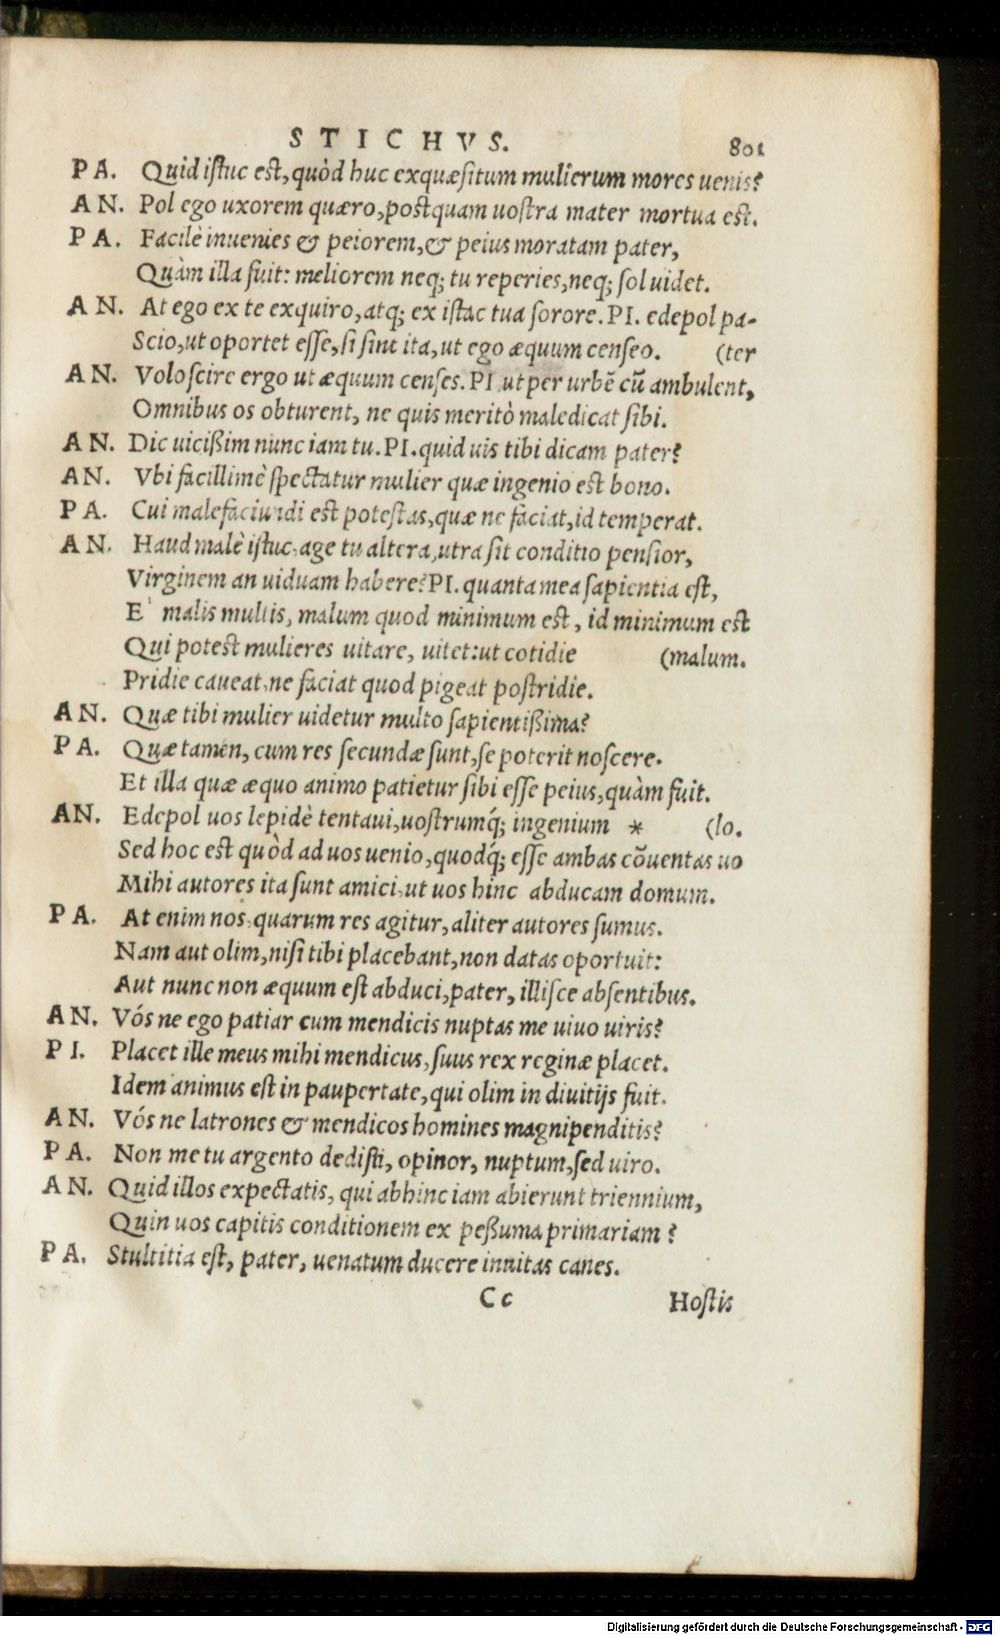 STICHVS. 801
PA. Quid istuc est, quòd huc exquæsitum mulierum mores uenis?
AN. Pol ego uxorem quæro, postquam uostra mater mortua est.
PA. Facilè inuenies & peiorem, & peius moratam pater,
Quàm illa fuit: meliorem neq; tu reperies, neq; sol uidet.
AN. At ego ex te exquiro, atq; ex istac tua sorore. PI. edepol pa-
Scio, ut oportet esse, si sint ita, ut ego æquum censeo. (ter
AN. Volo scire ergo ut æquum censes. PI. ut per urbē cū ambulent,
Omnibus os obturent, ne quis meritò maledicat sibi.
AN. Dic uicißim nunc iam tu. PI. quid uis tibi dicam pater?
AN. Vbi facillimè spectatur mulier quæ ingenio est bono.
PA. Cui malefaciundi est potestas, quæ ne faciat, id temperat.
AN. Haud malè istuc. age tu altera, utra sit conditio pensior,
Virginem an uiduam habere? PI. quanta mea sapientia est,
E' malis multis, malum quod minimum est, id minimum est
Qui potest mulieres uitare, uitet: ut cotidie (malum.
Pridie caueat, ne faciat quod pigeat postridie.
AN. Quæ tibi mulier uidetur multo sapientißima?
PA. Quæ tamen, cum res secundæ sunt, se poterit noscere.
Et illa quæ æquo animo patietur sibi esse peius, quàm fuit.
AN. Edepol uos lepidè tentaui, uostrumq́; ingenium * (lo.
Sed hoc est quòd ad uos uenio, quodq́; esse ambas cōuentas uo
Mihi autores ita sunt amici, ut uos hinc abducam domum.
PA. At enim nos, quarum res agitur, aliter autores sumus.
Nam aut olim, nisi tibi placebant, non datas oportuit:
Aut nunc non æquum est abduci, pater, illisce absentibus.
AN. Vós ne ego patiar cum mendicis nuptas me uiuo uiris?
PI. Placet ille meus mihi mendicus, suus rex reginæ placet.
Idem animus est in paupertate, qui olim in diuitijs fuit.
AN. Vós ne latrones & mendicos homines magnipenditis?
PA. Non me tu argento dedisti, opinor, nuptum, sed uiro.
AN. Quid illos expectatis, qui abhinc iam abierunt triennium,
Quin uos capitis conditionem ex peßuma primariam?
PA. Stultitia est, pater, uenatum ducere inuitas canes.
Cc Hostis
Digitalisierung gefördert durch die Deutsche Forschungsgemeinschaft - DFG